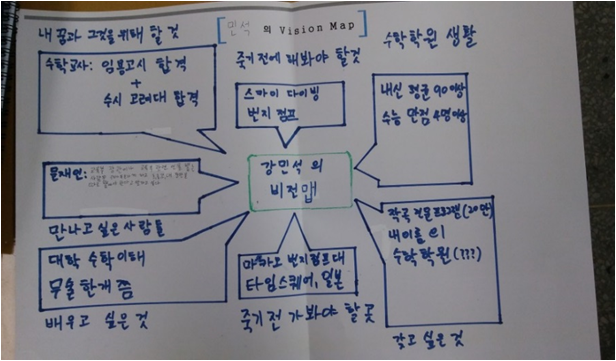 민석 의 Vision Map
내 꿈과 그것을 위해 할 것
수학교사: 임용고시 합격
+
수시 고려대 합격
죽기전에 해봐야 할것
스카이 다이빙
번지 점프
수학학원 생활
내신 평균 90이상
수능 만점 4명이상
문재인:
만나고 싶은 사람들
강민석 의
비전맵
대학 수학이해
무술 한개 쯤
배우고 싶은 것
마카오 번지점프대
타임스퀘어, 일본
죽기전 가봐야 할 곳
작곡 전문 프로그램(20만)
내이름 el
수학학원(???)
갖고 싶은 것